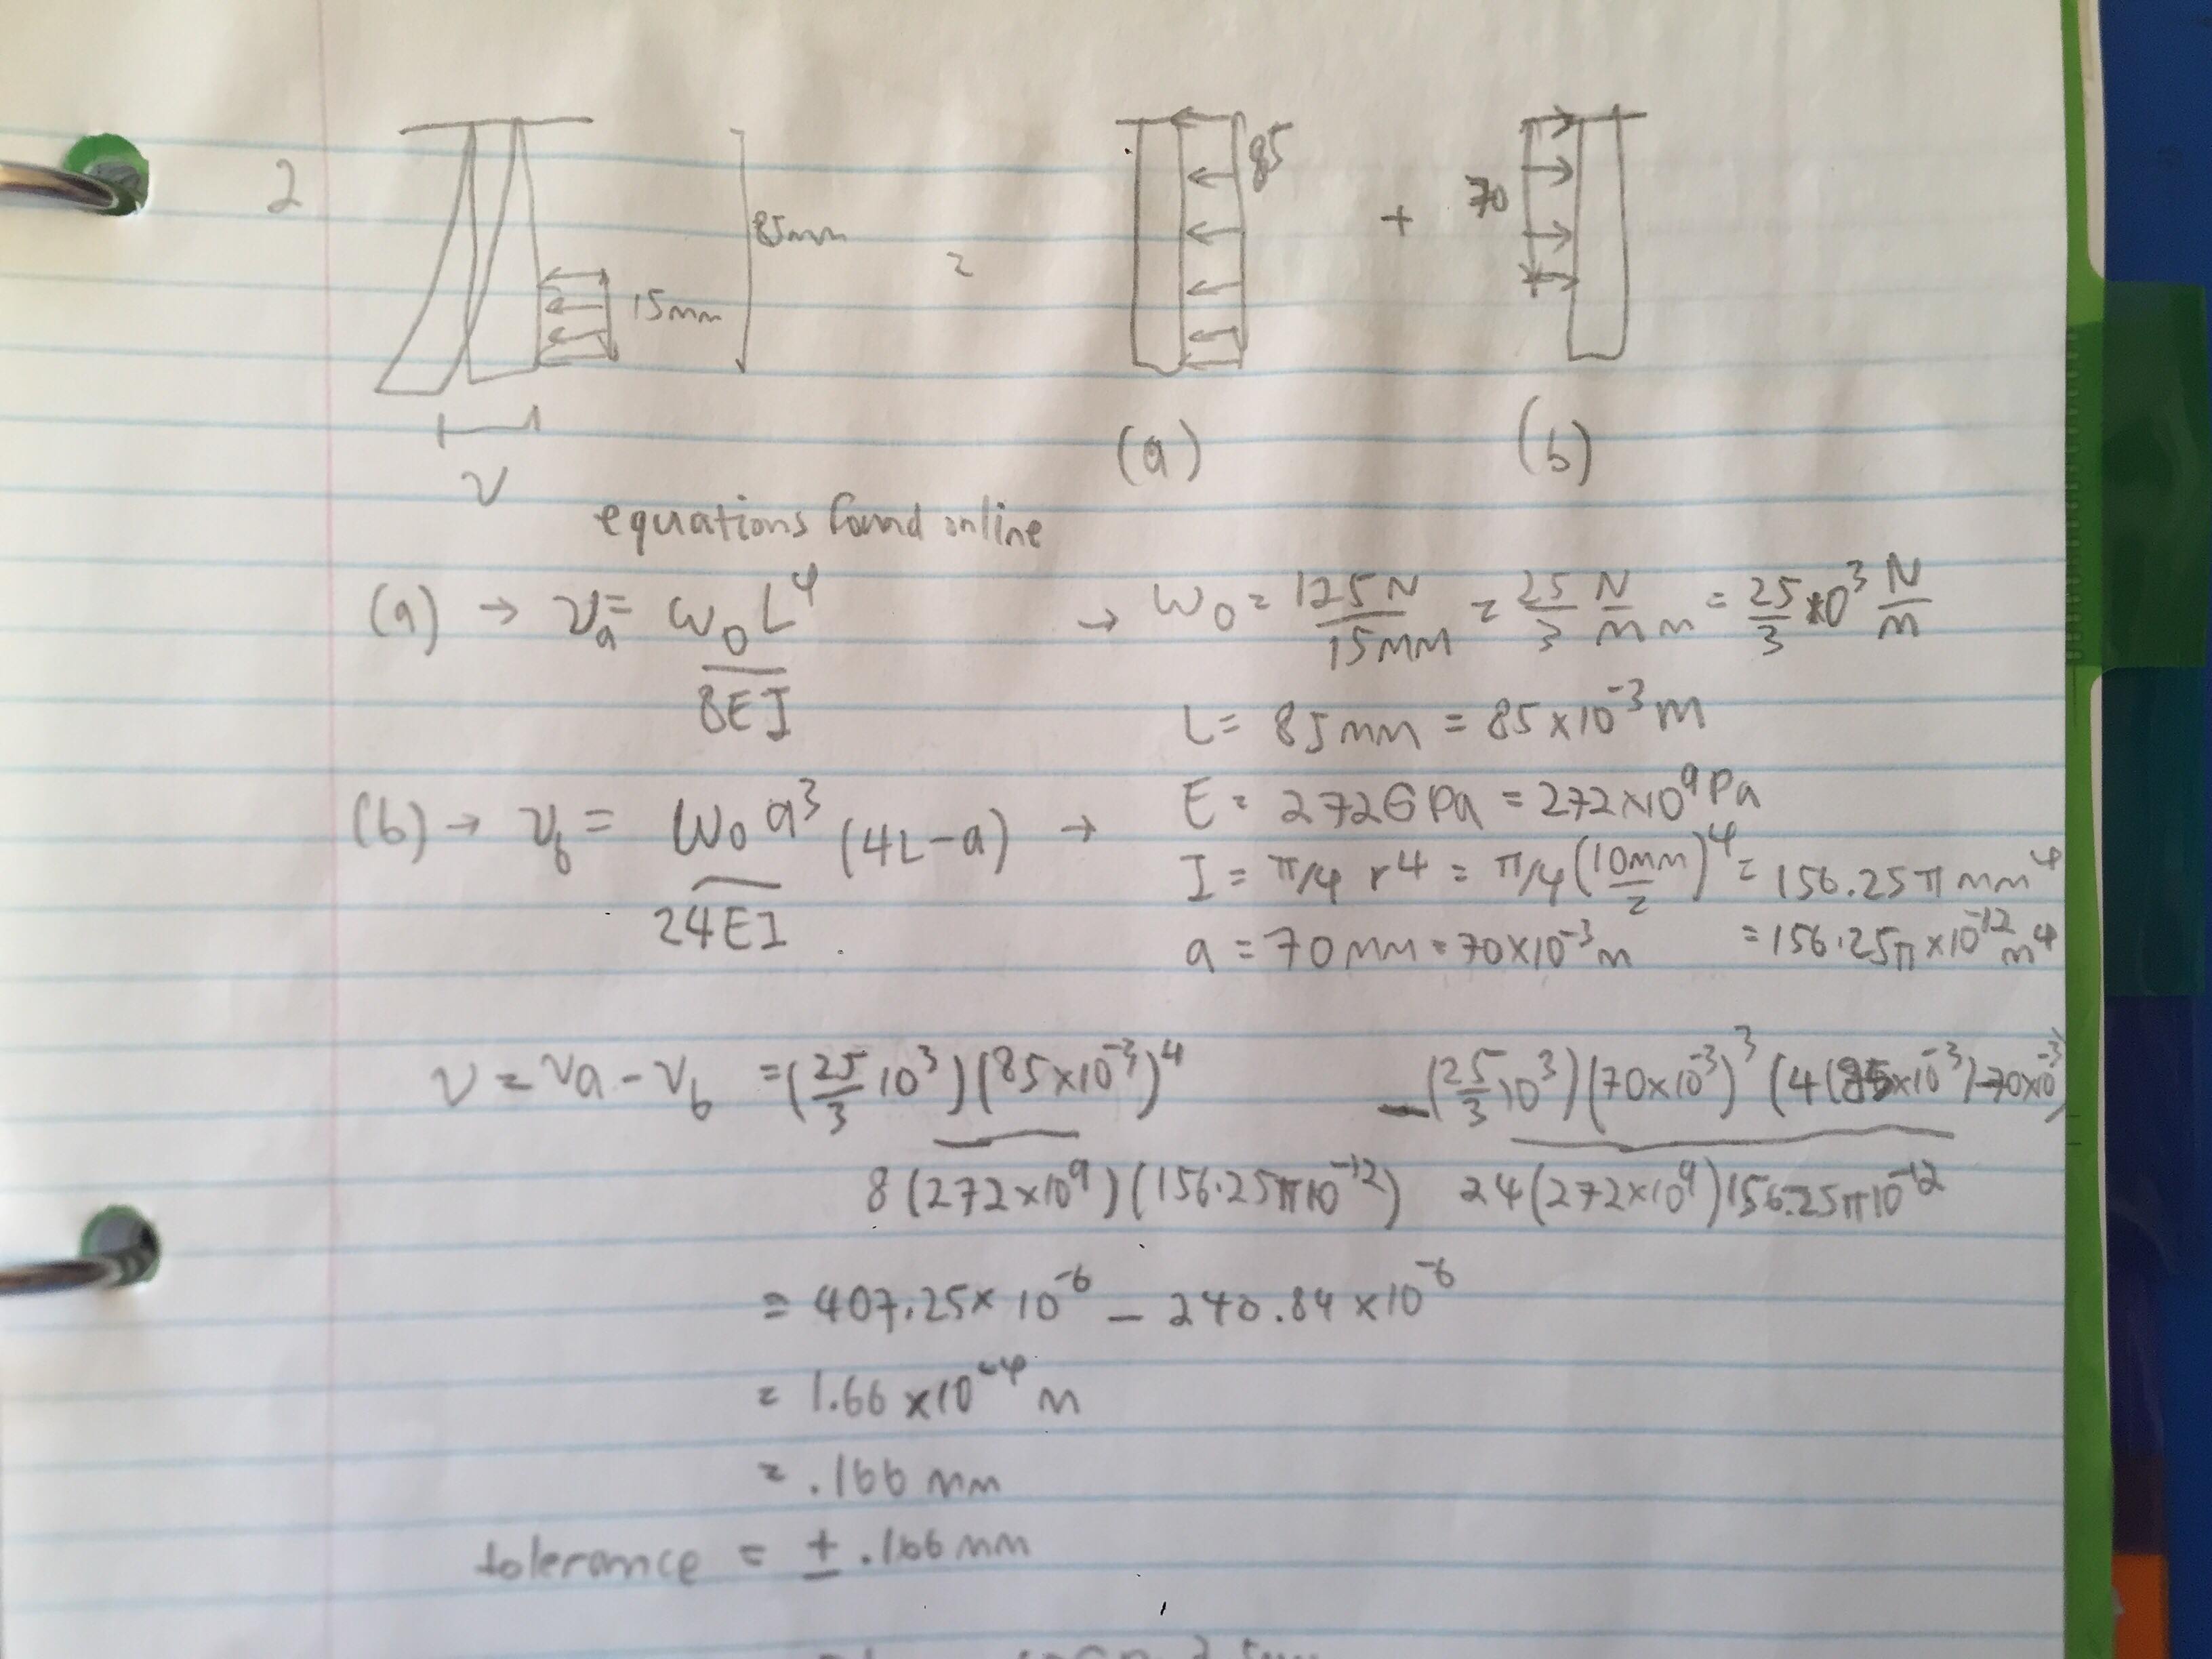 2
85mm
15mm
=
85
+
70
ν
(a)
(b)
equations found online
(a) → νa = ω0 L^4 / 8EI → ω0 = 125N / 15mm = 25/3 N/mm = 25/3 ×10^3 N/m
L = 85mm = 85×10^-3 m
(b) → νb = ω0 a^3 / 24EI (4L-a) → E = 272GPa = 272×10^9 Pa
I = π/4 r^4 = π/4 (10mm/2)^4 = 156.25π mm^4
= 156.25π×10^-12 m^4
a = 70mm = 70×10^-3 m
ν = νa - νb = (25/3 10^3)(85×10^-3)^4 / 8(272×10^9)(156.25π10^-12) - (25/3 10^3)(70×10^-3)^3 (4(85×10^-3)-70×10^-3) / 24(272×10^9)156.25π10^-12
= 407.25×10^-6 - 240.84×10^-6
= 1.66×10^-4 m
= .166 mm
tolerance = ± .166mm